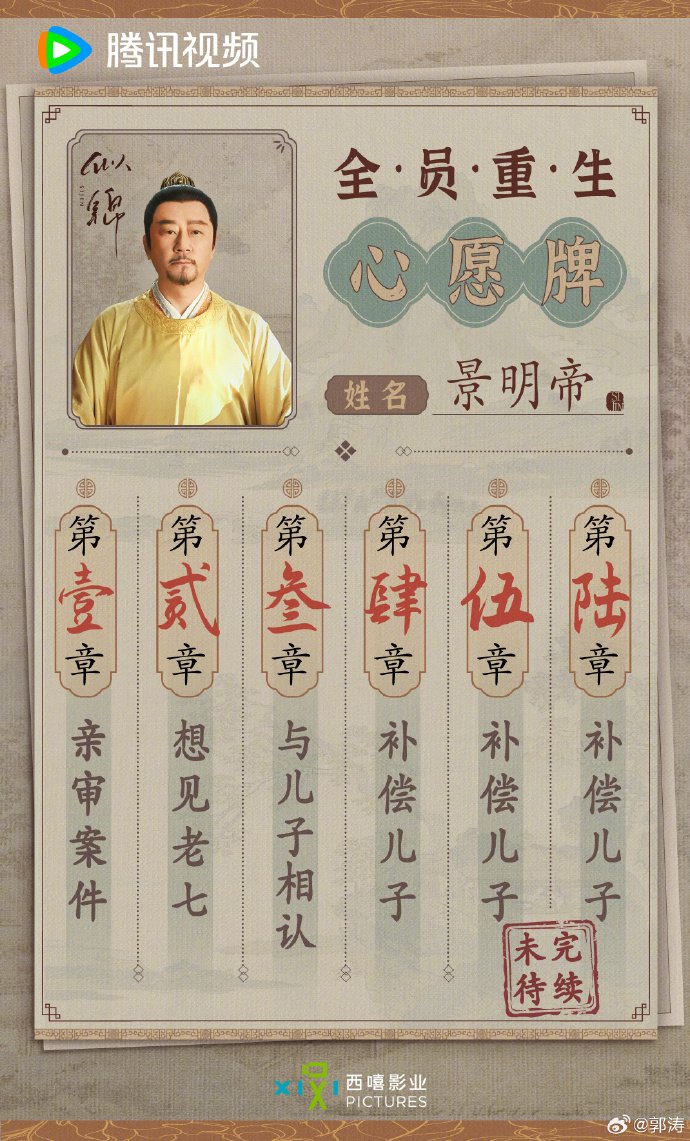 腾讯视频
似锦
SI JIN
全·员·重·生
心愿牌
姓名
景明帝
第壹章
亲审案件
第贰章
想见老七
第叁章
与儿子相认
第肆章
补偿儿子
第伍章
补偿儿子
第陆章
补偿儿子
未完
待续
XIXI
西嘻影业
PICTURES
@郭涛